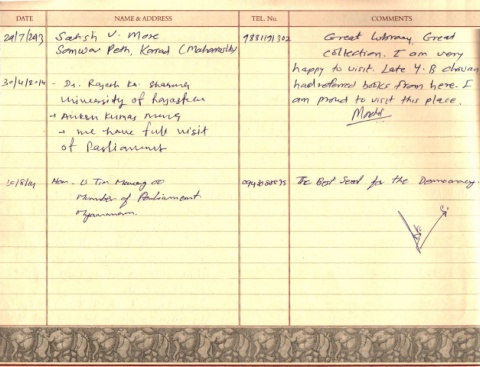 DATE NAME & ADDRESS TEL. No. COMMENTS
Satish V. More
Somwar Peth, Karad (Maharashtra)
Great Library, Great
collection. I am very
happy to visit. Late Y. B chavan
had referred books from here. I
am proud to visit this place.
30/4/2014 - Dr. Rajesh Kr. Sharma
University of Rajasthan
→ we have full visit
of Parliament
Hon. U Tin Maung oo
Member of Parliament
Myanmar
The Best Seed for the Democracy.